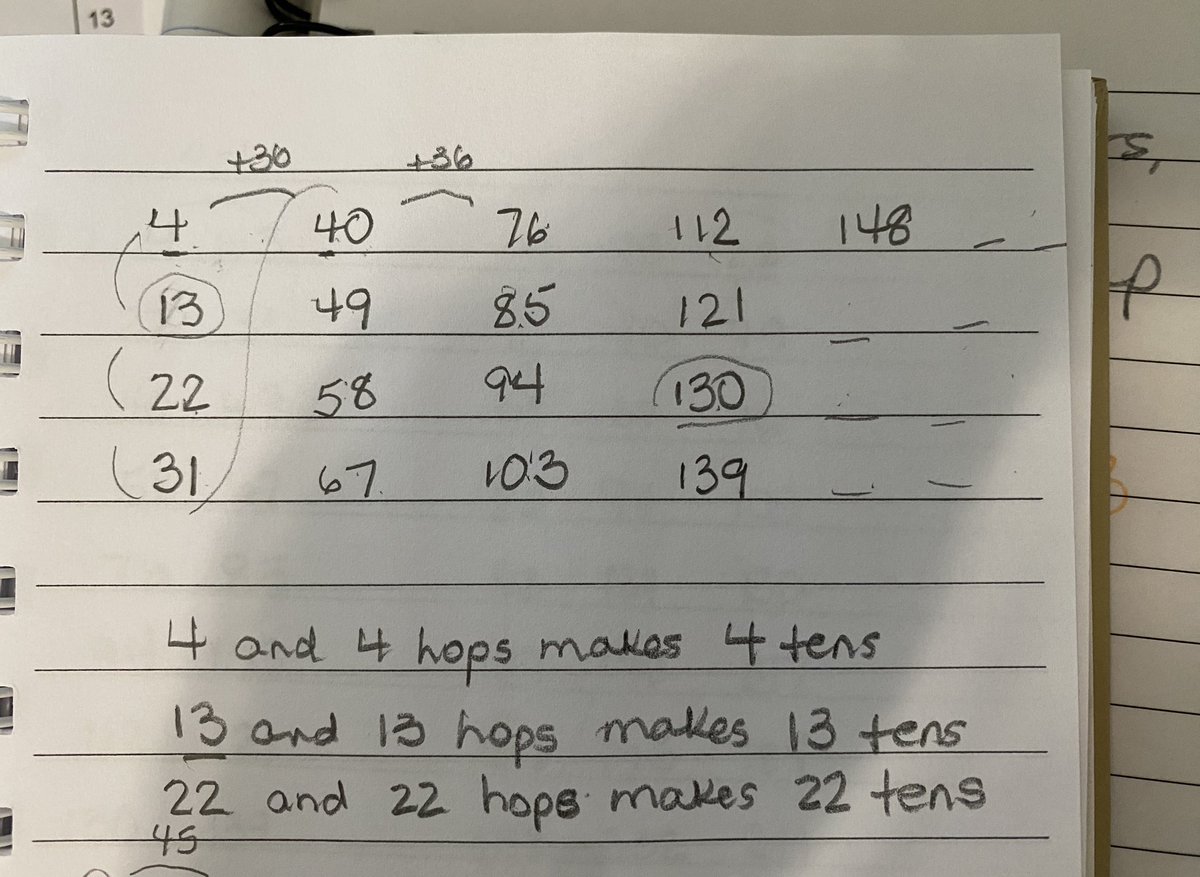 13
+36 +36
4 40 76 112 148
13 49 85 121
22 58 94 130
31 67 103 139
4 and 4 hops makes 4 tens
13 and 13 hops makes 13 tens
22 and 22 hops makes 22 tens
45
s,
p